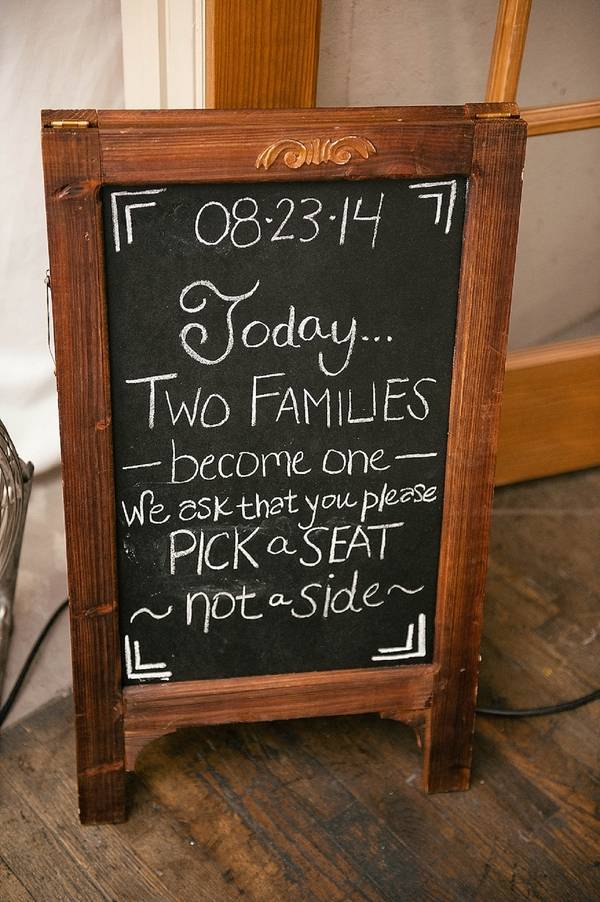 08·23·14
Today...
TWO FAMILIES
— become one —
We ask that you please
PICK a SEAT
~ not a side ~